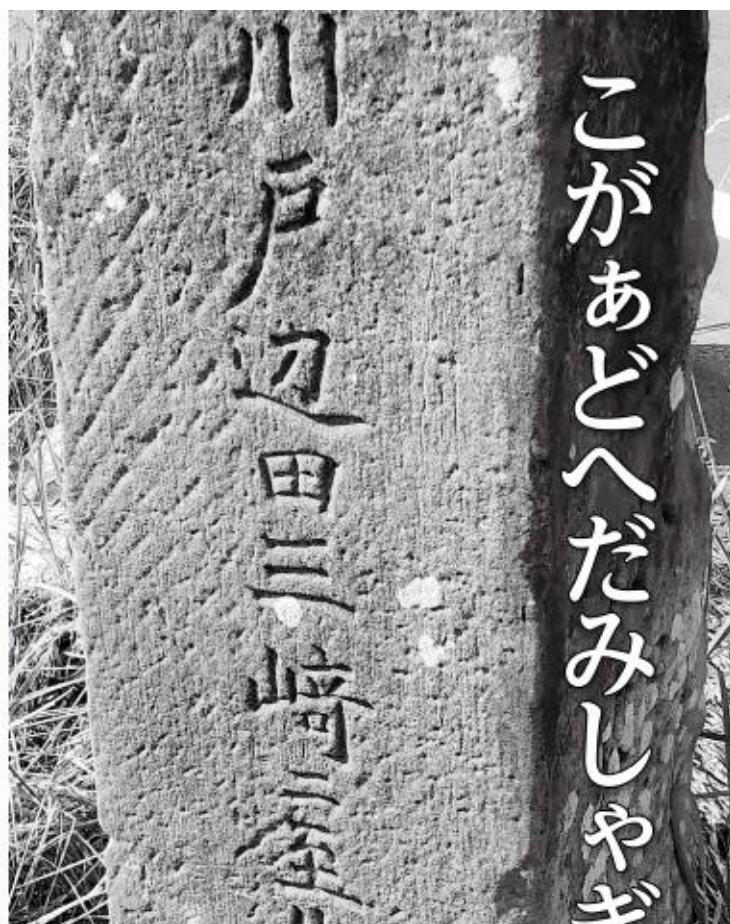 こがぁどへだみしゃぎ
川戸辺田三崎ニ至